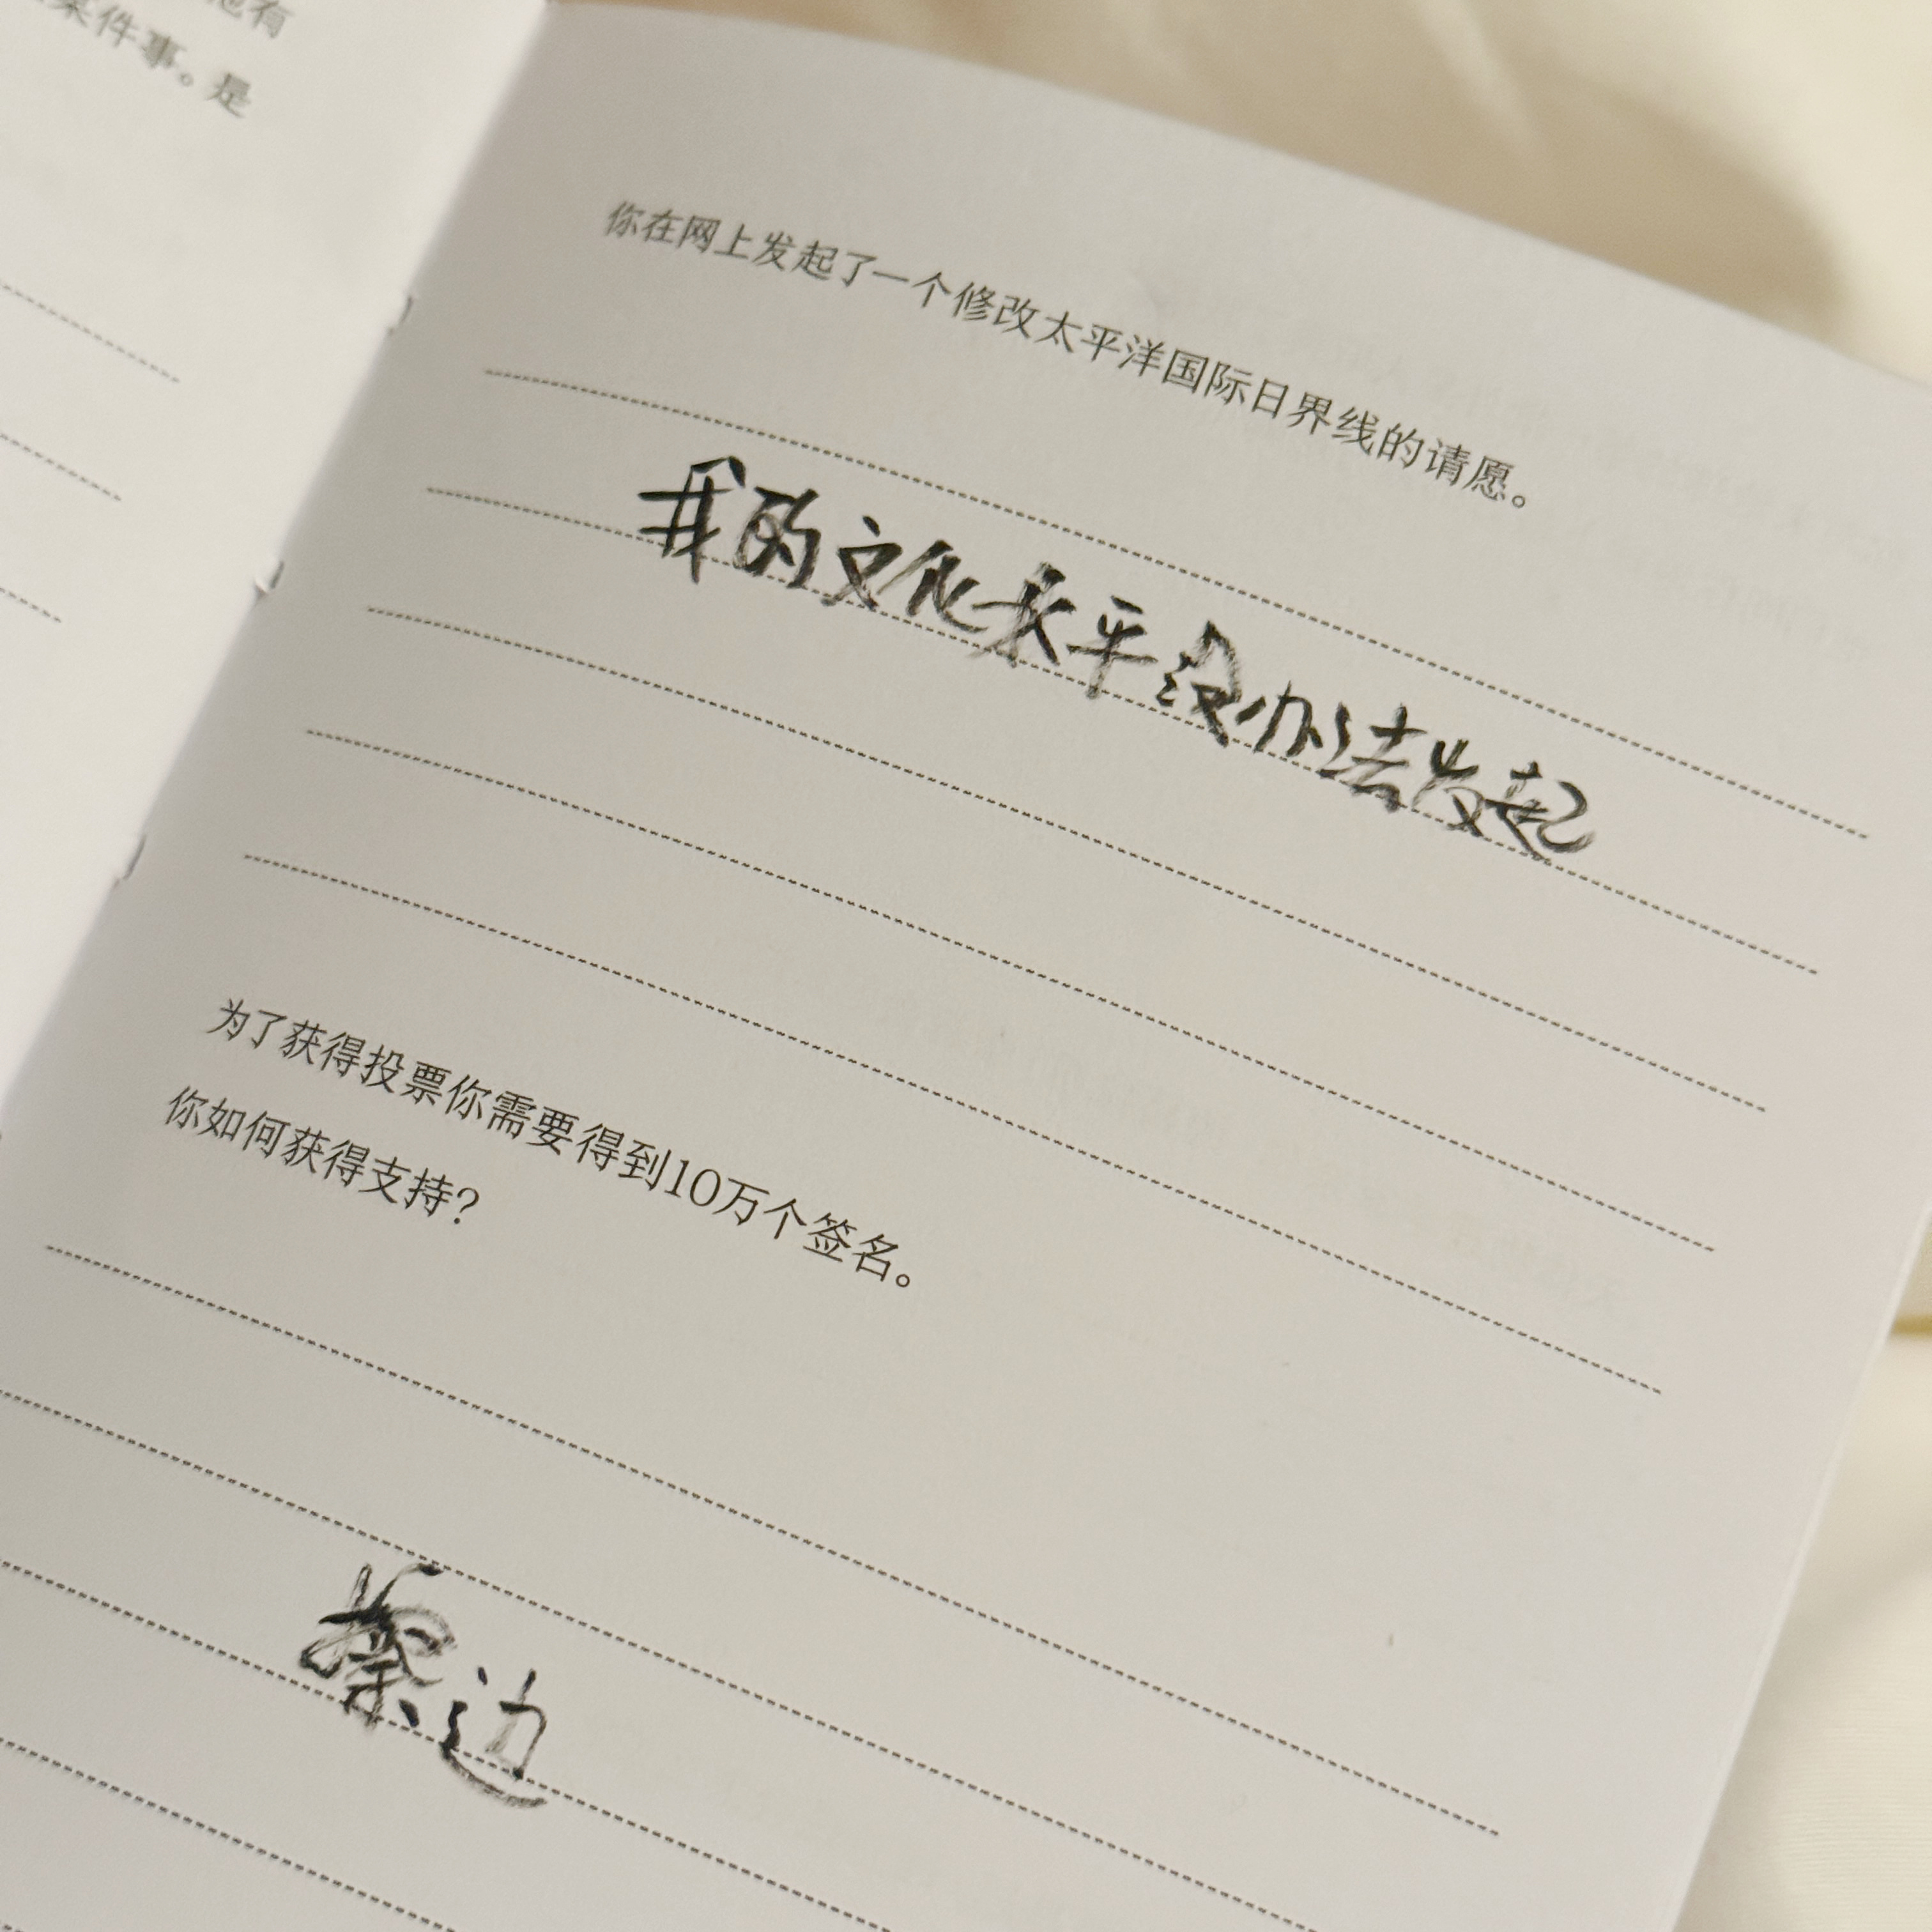 有
案件事。是
你在网上发起了一个修改太平洋国际日界线的请愿。
我的文化水平没办法发起
为了获得投票你需要得到10万个签名。
你如何获得支持？
擦边